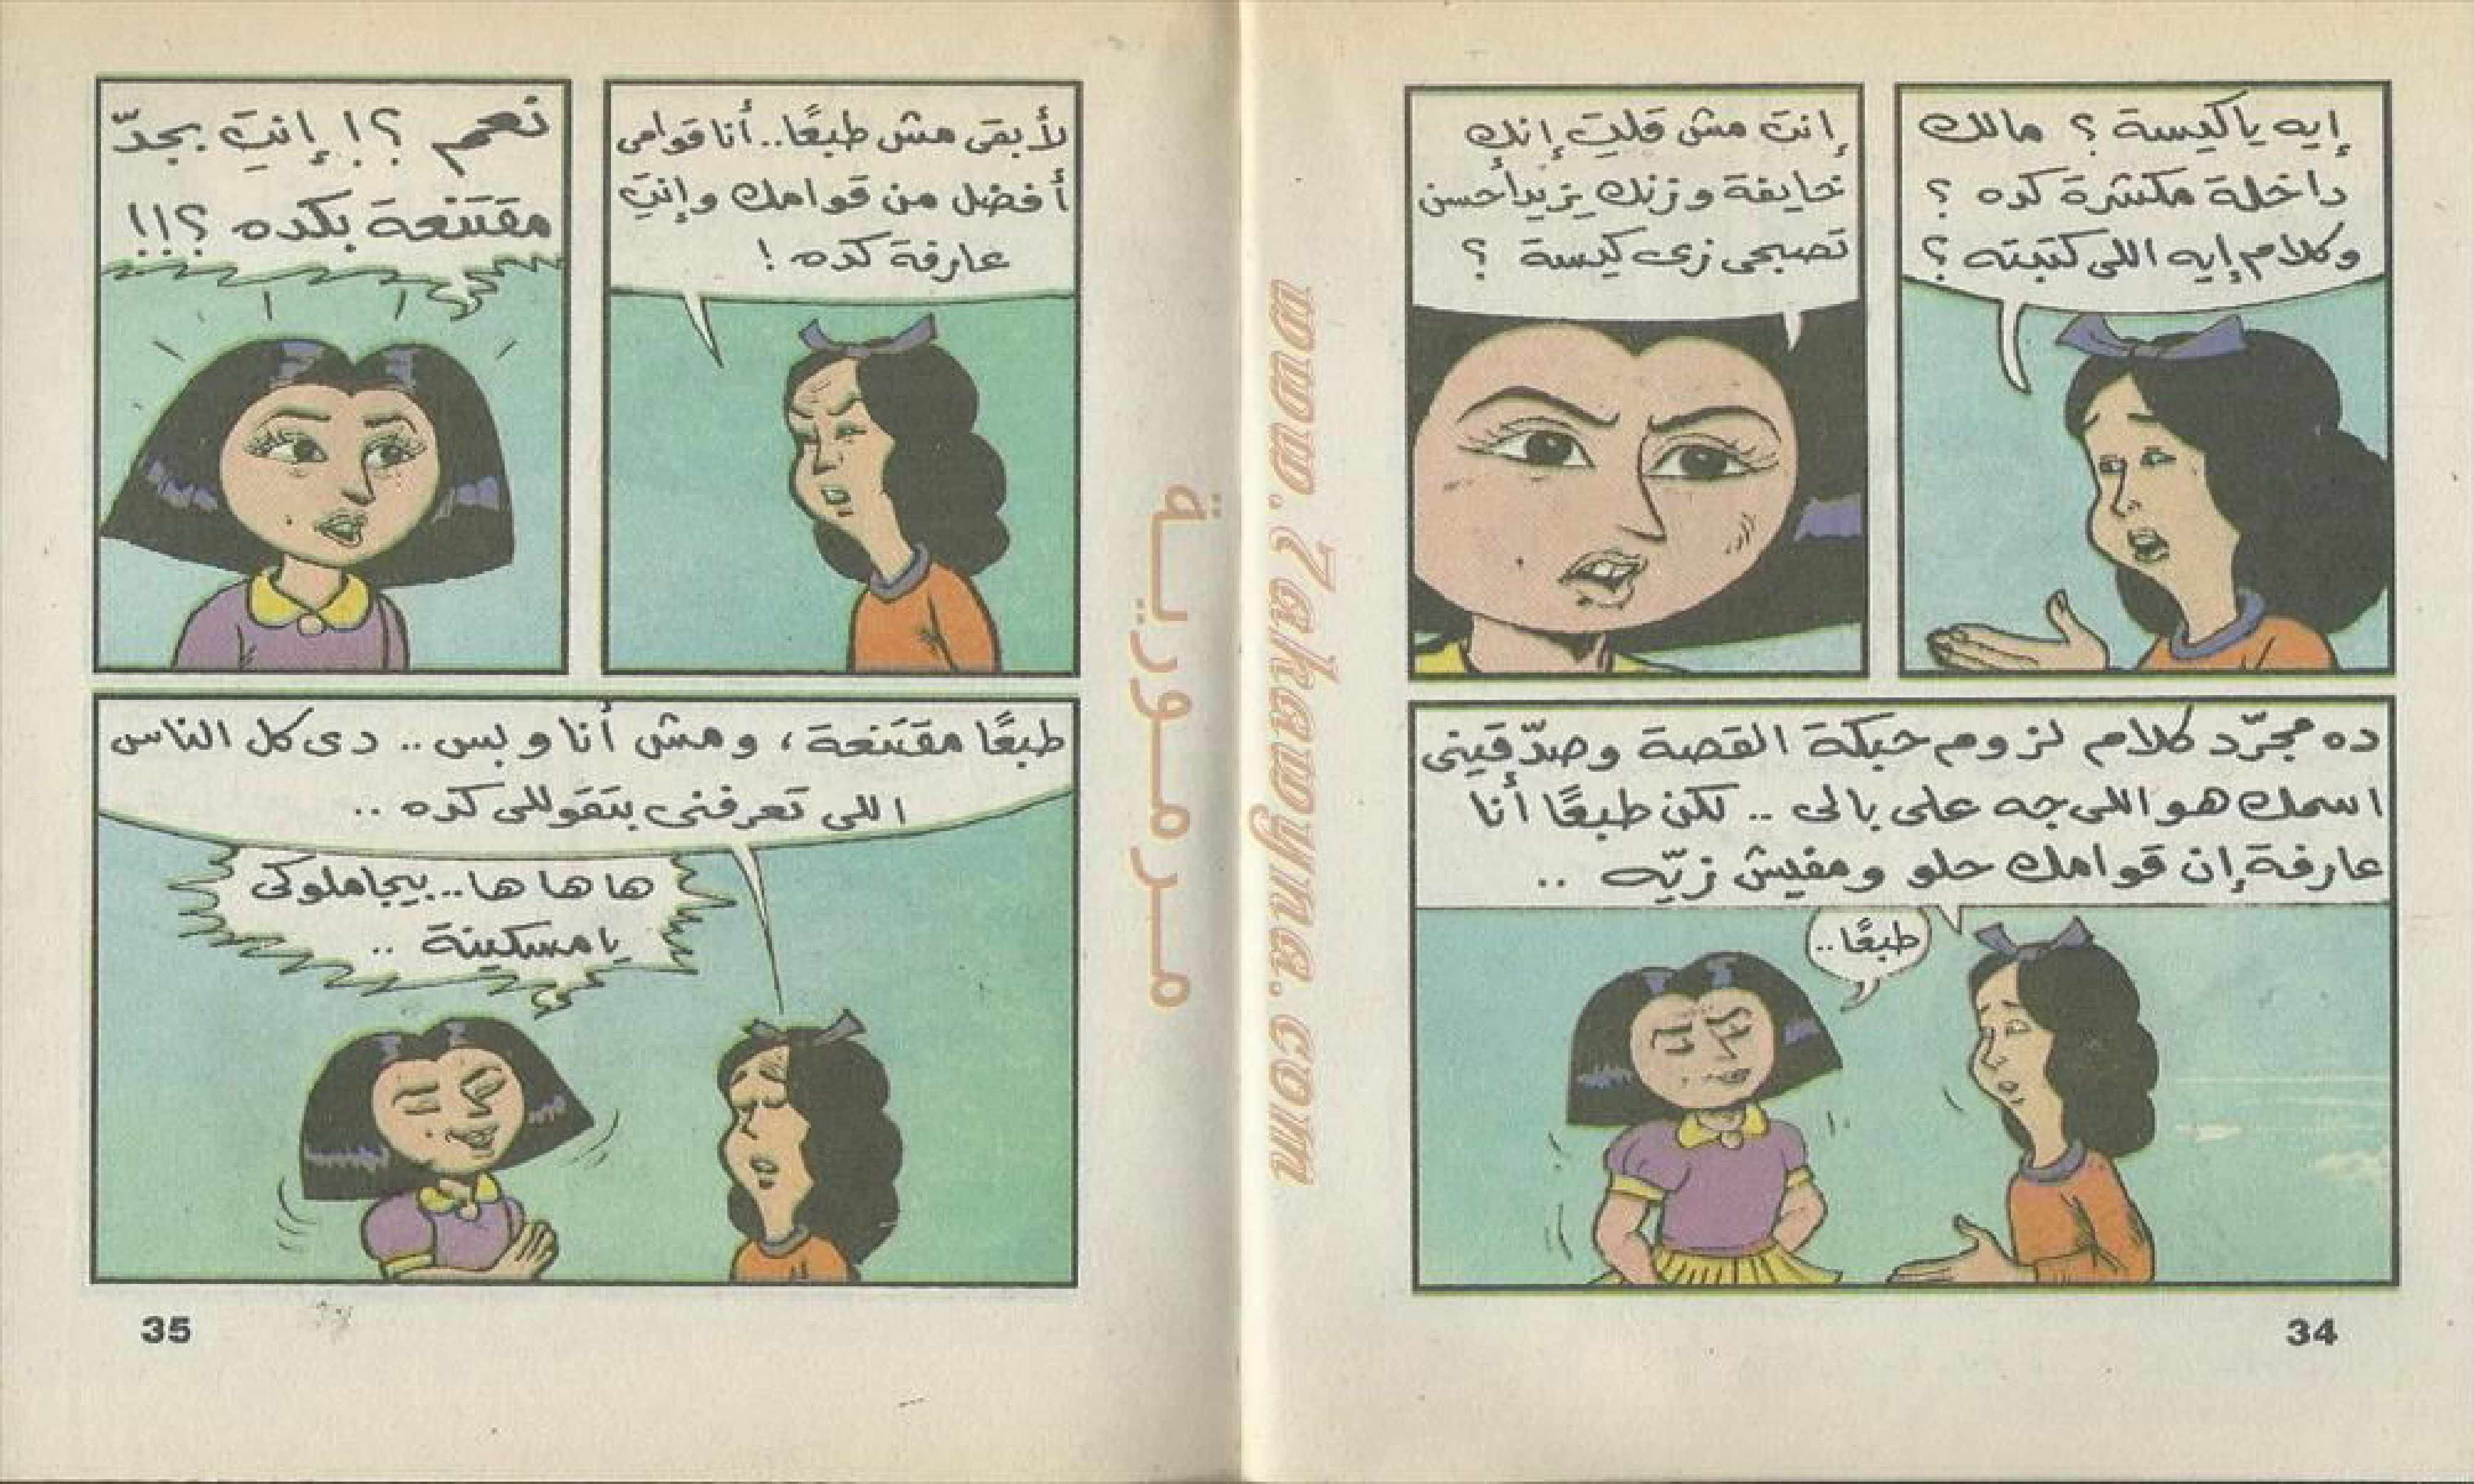 إيه ياكيسة؟ مالك
داخلة مكشرة كده؟
وكلام إيه اللى كتبته؟
إنتِ مش قلتِ إنك
خايفة وزنك يزيد أحسن
تصبحى زى كيسة؟
ده مجرّد كلام لزوم حبكة القصة وصدّقينى
اسمك هو اللى جه على بالى.. لكن طبعًا أنا
عارفة إن قوامك حلو ومفيش زيّه..
طبعًا..
34
لأ بقى مش طبعًا.. أنا قوامى
أفضل من قوامك وإنتِ
عارفة كده!
نعم؟! إنتِ بجدّ
مقتنعة بكده؟!!
طبعًا مقتنعة، ومش أنا وبس.. دى كل الناس
اللى تعرفنى بتقوللى كده..
ها ها ها.. بيجاملوكى
يا مسكينة..
35
مرمورية
www.Zakawyna.com